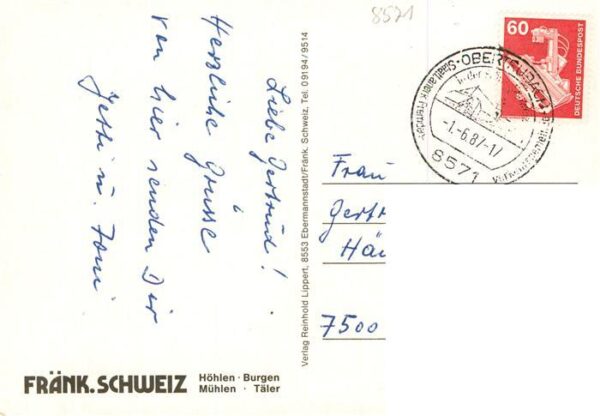 Liebe Gertrud!
Herzliche Grüsse
von hier senden Dir
Jetti u. Toni
FRÄNK. SCHWEIZ
Höhlen · Burgen
Mühlen · Täler
Verlag Reinhold Lippert, 8553 Ebermannstadt/Fränk. Schweiz, Tel. 09194/9514
8571
60
DEUTSCHE BUNDESPOST
-1.-6.87-17
8571
Frau
Gertr
Häu
7500